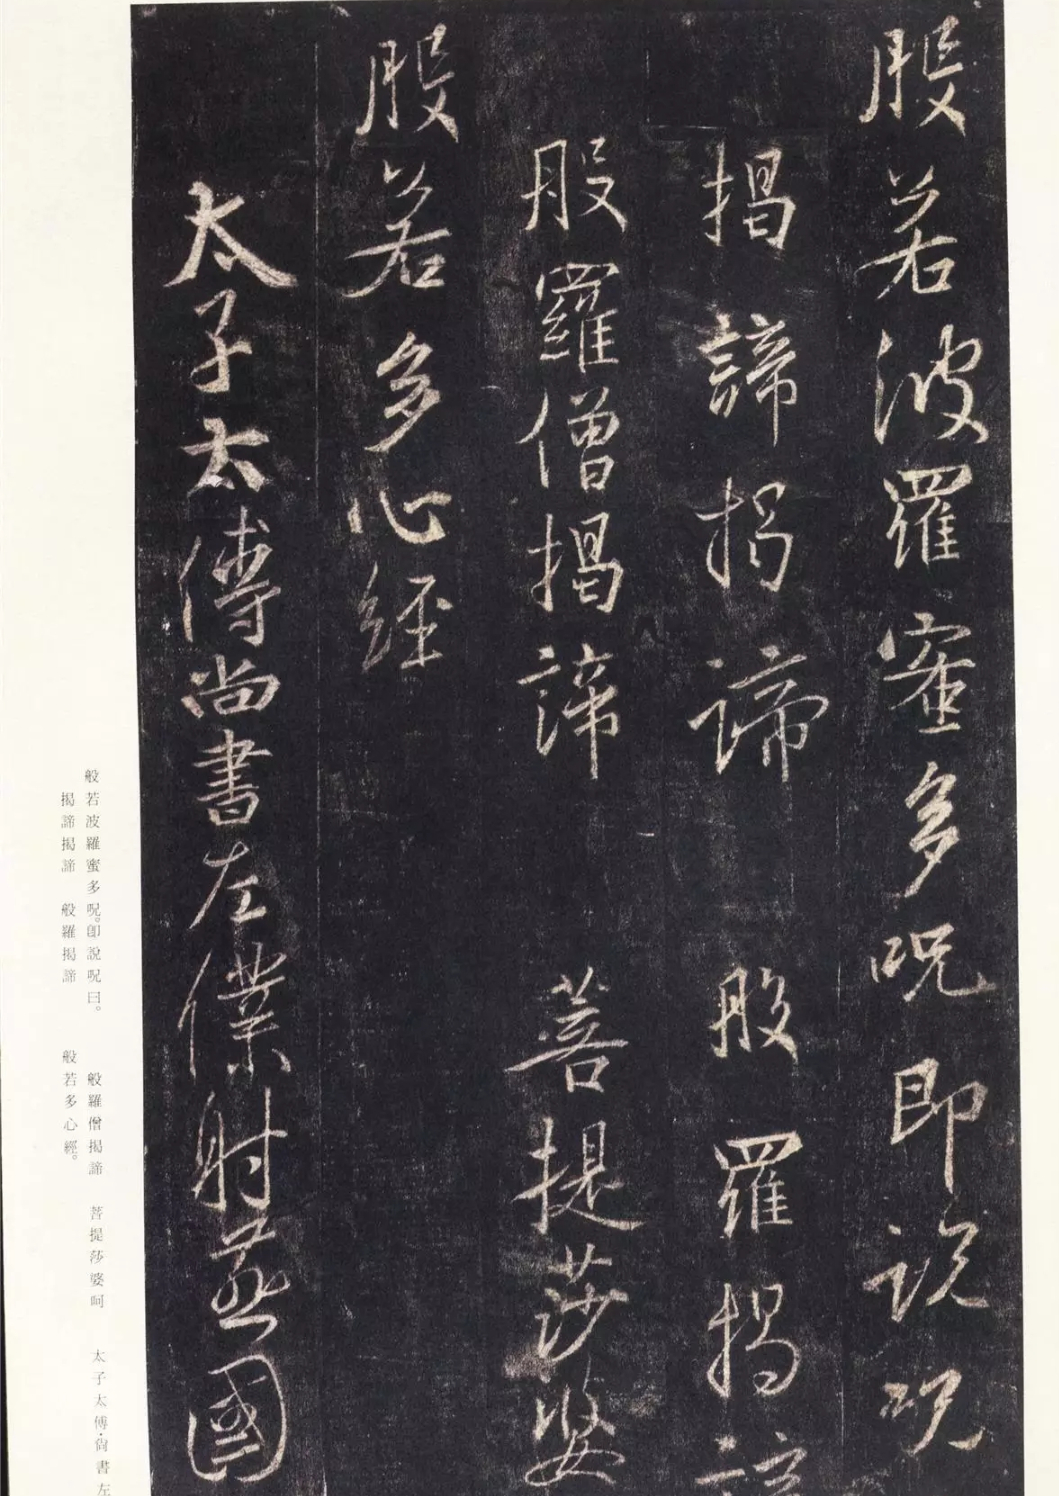 般若波羅蜜多呪即說呪
揭諦揭諦 般羅揭諦
般羅僧揭諦 菩提莎婆
般若多心經
太子太傅尚書左僕射燕國
般若波羅蜜多呪。卽說呪曰。 般羅僧揭諦 菩提莎婆呵 太子太傅·尙書左
揭諦揭諦 般羅揭諦 般若多心經。